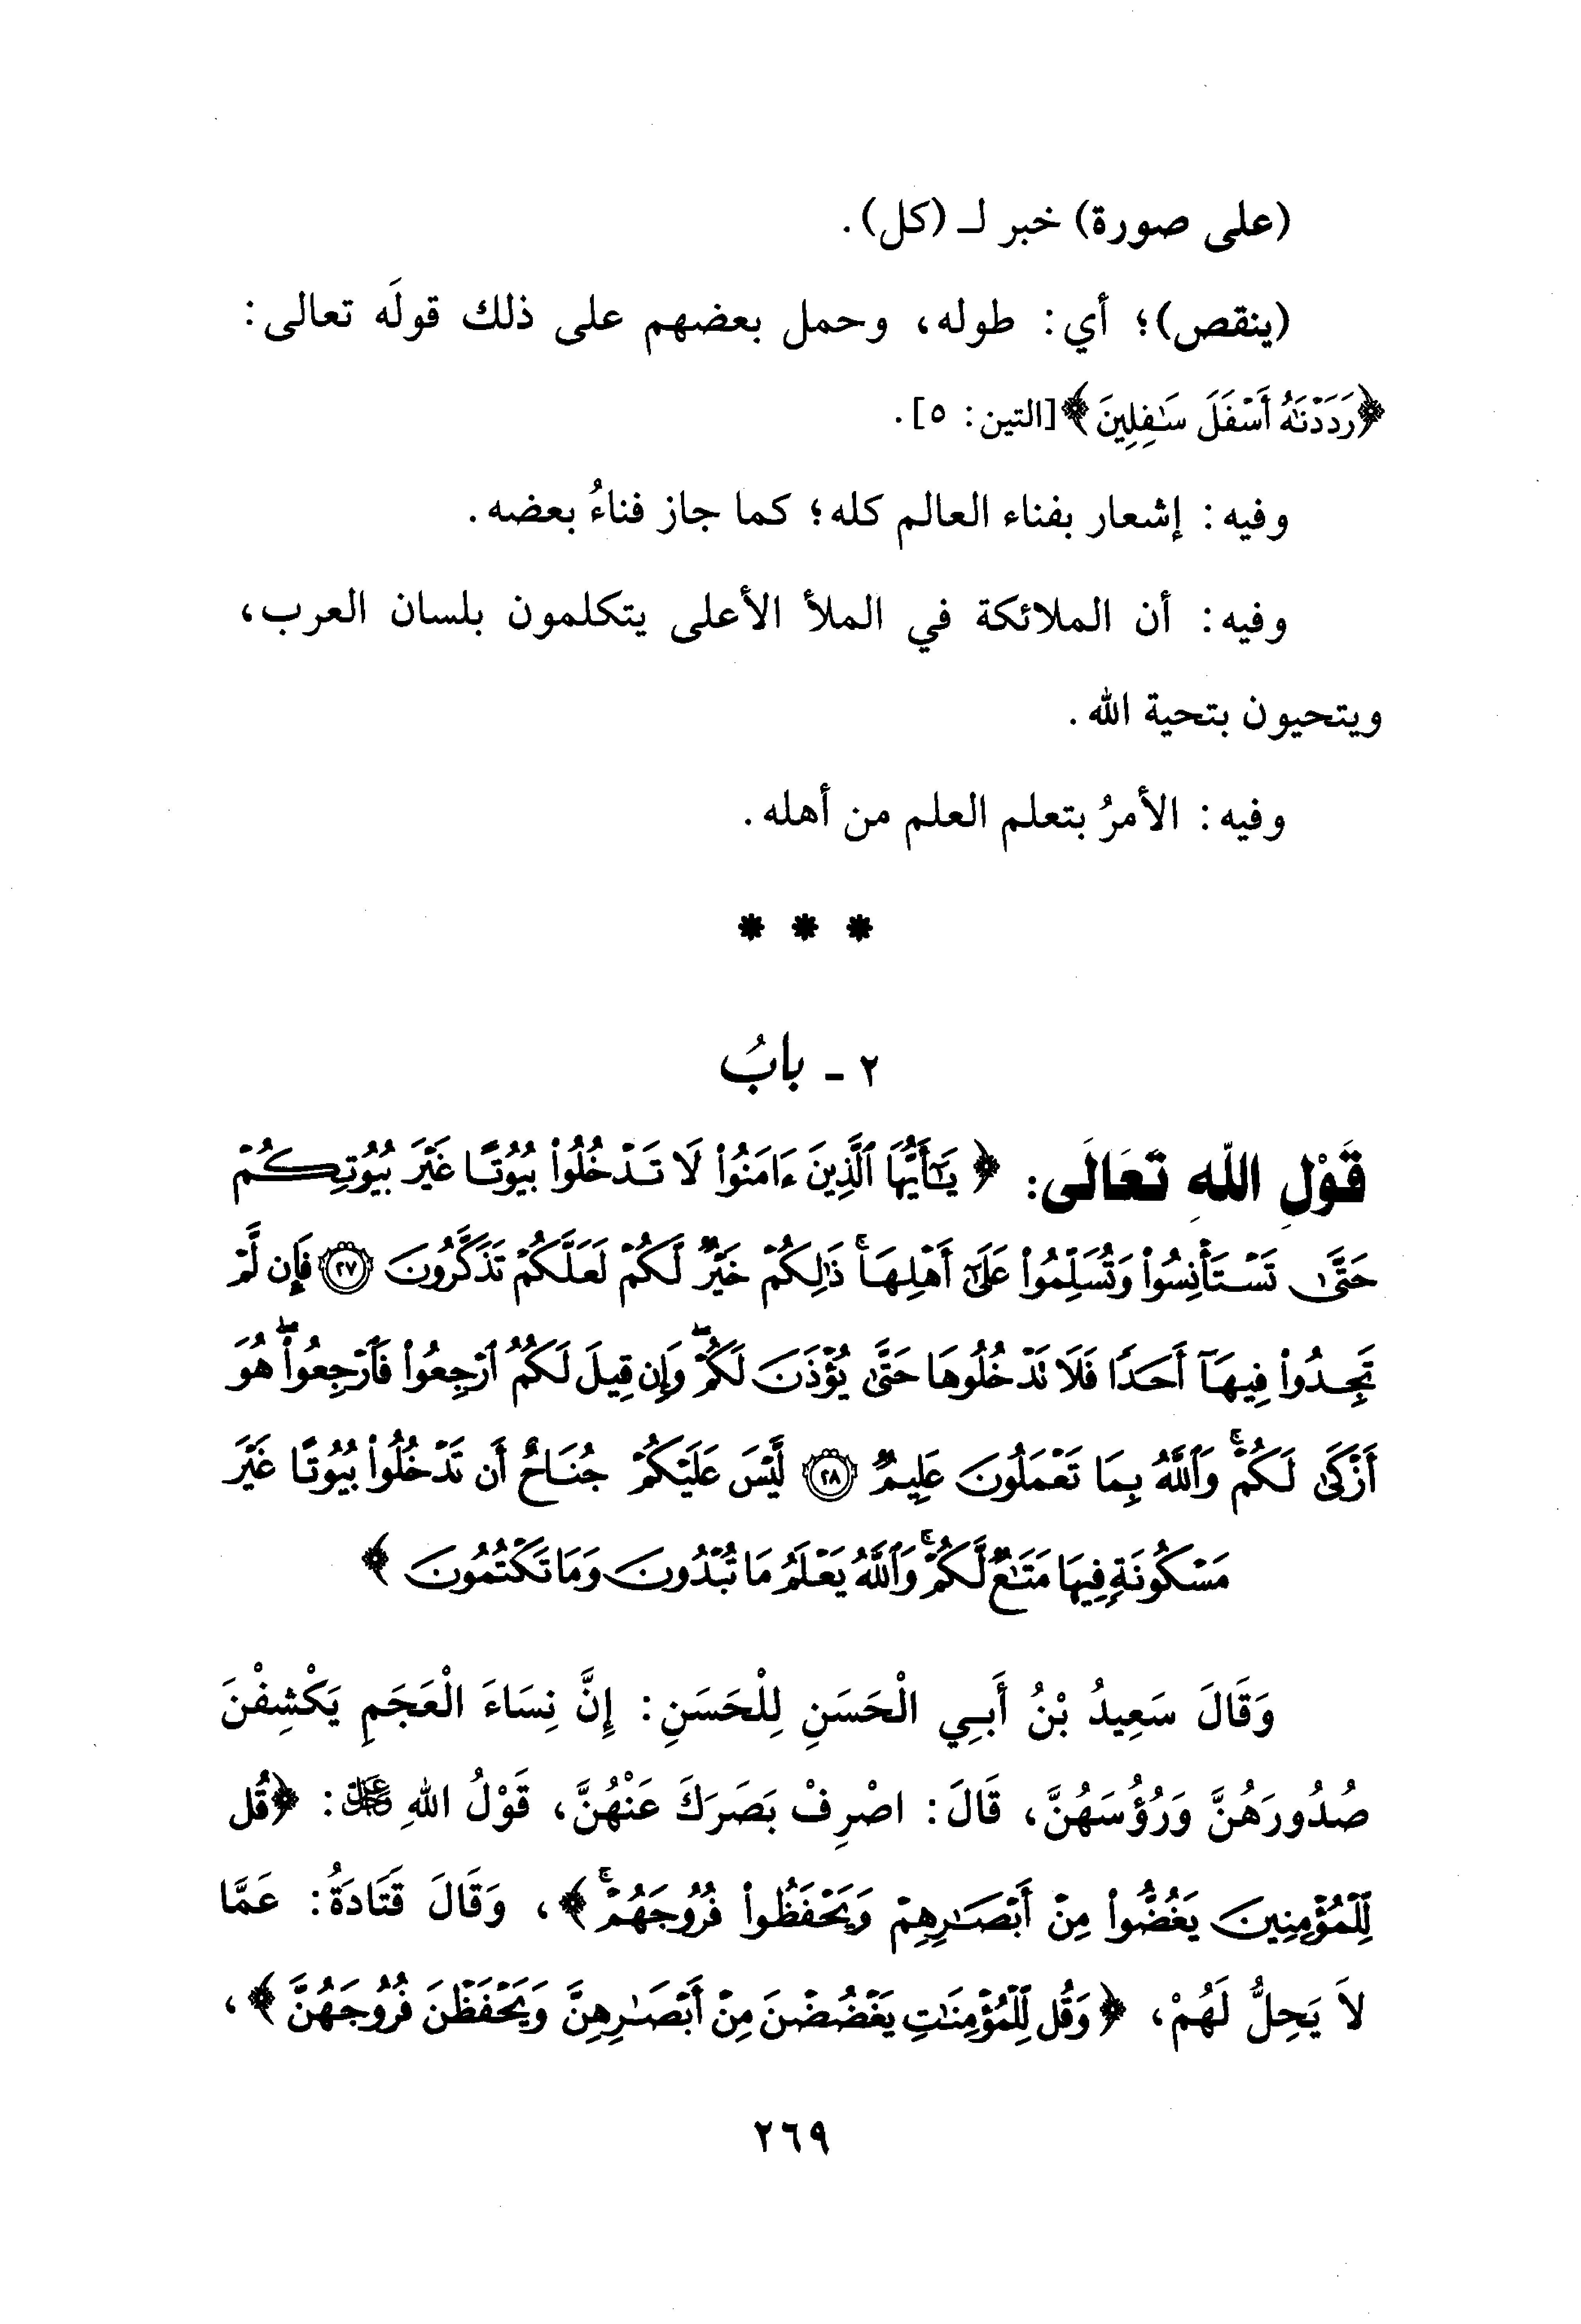 (على صورة) خبر لـ (كل).
(ينقص)؛ أي: طوله، وحمل بعضهم على ذلك قولَه تعالى:
﴿رَدَدْنَٰهُ أَسْفَلَ سَٰفِلِينَ﴾ [التين: ٥].
وفيه: إشعار بفناء العالم كله؛ كما جاز فناءُ بعضه.
وفيه: أن الملائكة في الملأ الأعلى يتكلمون بلسان العرب،
ويتحيون بتحية الله.
وفيه: الأمرُ بتعلم العلم من أهله.
* * *
٢ - بابُ
قَوْلِ اللهِ تَعَالَى: ﴿يَٰٓأَيُّهَا ٱلَّذِينَ ءَامَنُوا۟ لَا تَدْخُلُوا۟ بُيُوتًا غَيْرَ بُيُوتِكُمْ
حَتَّىٰ تَسْتَأْنِسُوا۟ وَتُسَلِّمُوا۟ عَلَىٰٓ أَهْلِهَا ۚ ذَٰلِكُمْ خَيْرٌ لَّكُمْ لَعَلَّكُمْ تَذَكَّرُونَ ٢٧ فَإِن لَّمْ
تَجِدُوا۟ فِيهَآ أَحَدًا فَلَا تَدْخُلُوهَا حَتَّىٰ يُؤْذَنَ لَكُمْ ۖ وَإِن قِيلَ لَكُمُ ٱرْجِعُوا۟ فَٱرْجِعُوا۟ ۖ هُوَ
أَزْكَىٰ لَكُمْ ۚ وَٱللَّهُ بِمَا تَعْمَلُونَ عَلِيمٌ ٢٨ لَّيْسَ عَلَيْكُمْ جُنَاحٌ أَن تَدْخُلُوا۟ بُيُوتًا غَيْرَ
مَسْكُونَةٍ فِيهَا مَتَٰعٌ لَّكُمْ ۚ وَٱللَّهُ يَعْلَمُ مَا تُبْدُونَ وَمَا تَكْتُمُونَ﴾
وَقَالَ سَعِيدُ بْنُ أَبِي الْحَسَنِ لِلْحَسَنِ: إِنَّ نِسَاءَ الْعَجَمِ يَكْشِفْنَ
صُدُورَهُنَّ وَرُؤُسَهُنَّ، قَالَ: اصْرِفْ بَصَرَكَ عَنْهُنَّ، قَوْلُ اللهِ عَزَّ وَجَلَّ: ﴿قُل
لِّلْمُؤْمِنِينَ يَغُضُّوا۟ مِنْ أَبْصَٰرِهِمْ وَيَحْفَظُوا۟ فُرُوجَهُمْ ۚ﴾، وَقَالَ قَتَادَةُ: عَمَّا
لاَ يَحِلُّ لَهُمْ، ﴿وَقُل لِّلْمُؤْمِنَٰتِ يَغْضُضْنَ مِنْ أَبْصَٰرِهِنَّ وَيَحْفَظْنَ فُرُوجَهُنَّ﴾،
٢٦٩